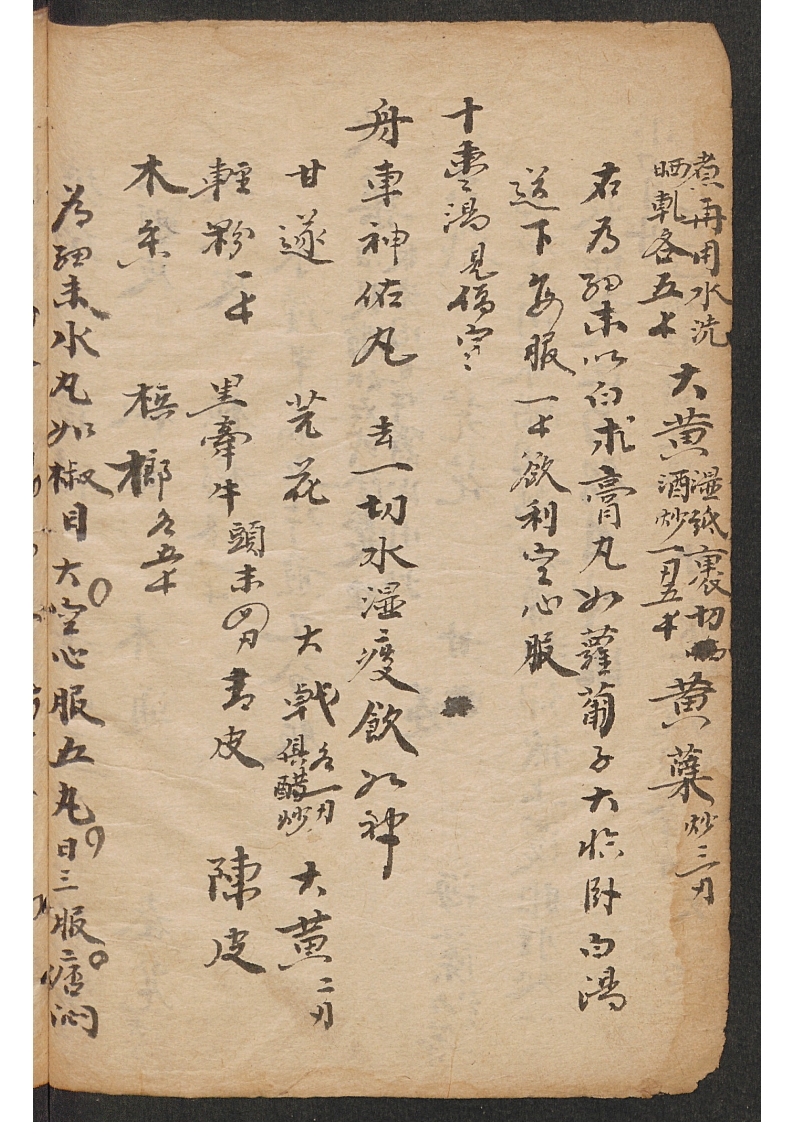 煮再用水洗
晒乹各五十 大黄 湿紙裹切
酒炒一两五十 黄蘗 炒三两
右為細末以白求膏丸如蘿蔔子大临卧白湯
送下每服一十欲利空心服
十枣湯 見傷寒
舟車神佑丸 去一切水湿痰飲如神
甘遂 芫花 大戟 各一两俱醋炒 大黄 二两
輕粉 一十 黑牽牛 頭末四两 青皮 陳皮
木香 梹榔 各五十
為細末水丸如椒目大空心服五丸日三服痞悶